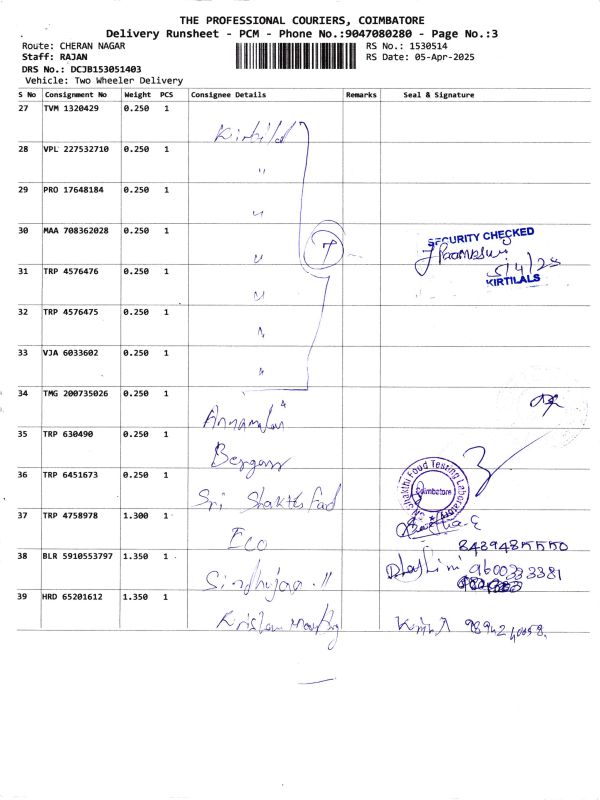 THE PROFESSIONAL COURIERS, COIMBATORE
Delivery Runsheet - PCM - Phone No.:9047080280 - Page No.:3
Route: CHERAN NAGAR RS No.: 1530514
Staff: RAJAN RS Date: 05-Apr-2025
DRS No.: DCJB153051403
Vehicle: Two Wheeler Delivery
S No Consignment No Weight PCS Consignee Details Remarks Seal & Signature
27 TVM 1320429 0.250 1
28 VPL 227532710 0.250 1 "
29 PRO 17648184 0.250 1 "
30 MAA 708362028 0.250 1 " 7 SECURITY CHECKED
5/4/25
KIRTILALS
31 TRP 4576476 0.250 1 "
32 TRP 4576475 0.250 1 "
33 VJA 6033602 0.250 1 "
34 TMG 200735026 0.250 1
35 TRP 630490 0.250 1
36 TRP 6451673 0.250 1 Sri Shakthi Food Sri Shakthi Food Testing Laboratory Coimbatore
37 TRP 4758978 1.300 1 Eco
38 BLR 5910553797 1.350 1 9600333381
39 HRD 65201612 1.350 1